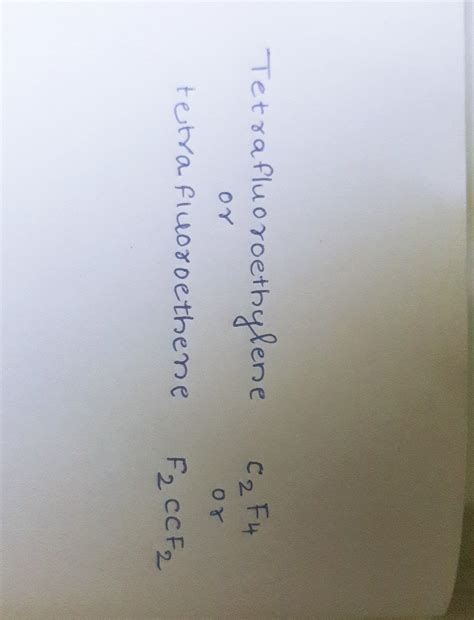 Tetrafluoroethylene C₂F₄
or or
tetrafluoroethene F₂CCF₂